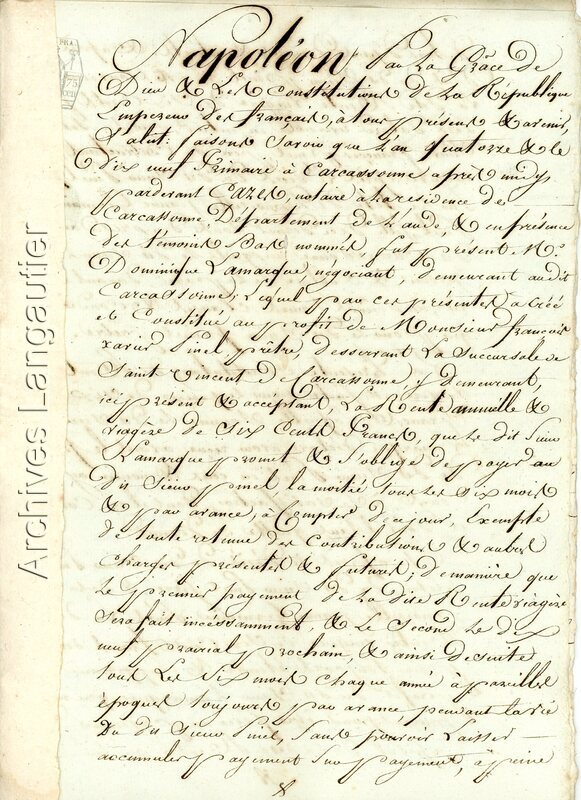 Napoléon Par La Grâce de
Dieu & Les constitutions de La République
Empereur des français, à tous présens & avenir,
Salut. faisons Savoir que L'an quatorze & le
Dix neuf frimaire à Carcassonne après midy
pardevant Cazes, notaire à la residence de
Carcassonne Département de L'aude, & en présence
des témoins Bas nommés, fut présent Mr.
Dominique Lamarque négociant, demeurant audit
Carcassonne; Lequel par ces présentes a Créé
et Constitué au profit de Monsieur françois
xavier Pinel prêtre, desservant La Succursale de
Saint vincent de Carcassonne, y demeurant,
ici présent & acceptant, La Rente annuelle &
viagère de Six Cents Francs, que Le dit Sieur
Lamarque promet & S'oblige de payer au
dit Sieur pinel, la moitié tous les six mois
& par avance, à Compter de ce jour, Exempte
de toute retenue des Contributions & autres
charges présentes & futures; de manière que
Le premier payement de La dite Rente viagère
sera fait incéssamment, & Le second Le dix
neuf prairial prochain, & ainsi de suite
tous Les Six mois chaque année à pareilles
époques toujours par avance, pendant la vie
Du dit Sieur Pinel, Sans pouvoir Laisser
accumuler payement sur payement, à peine
Archives Langautier